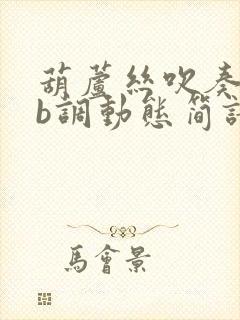 葫蘆絲吹奏
b調動態简譜
馬會景